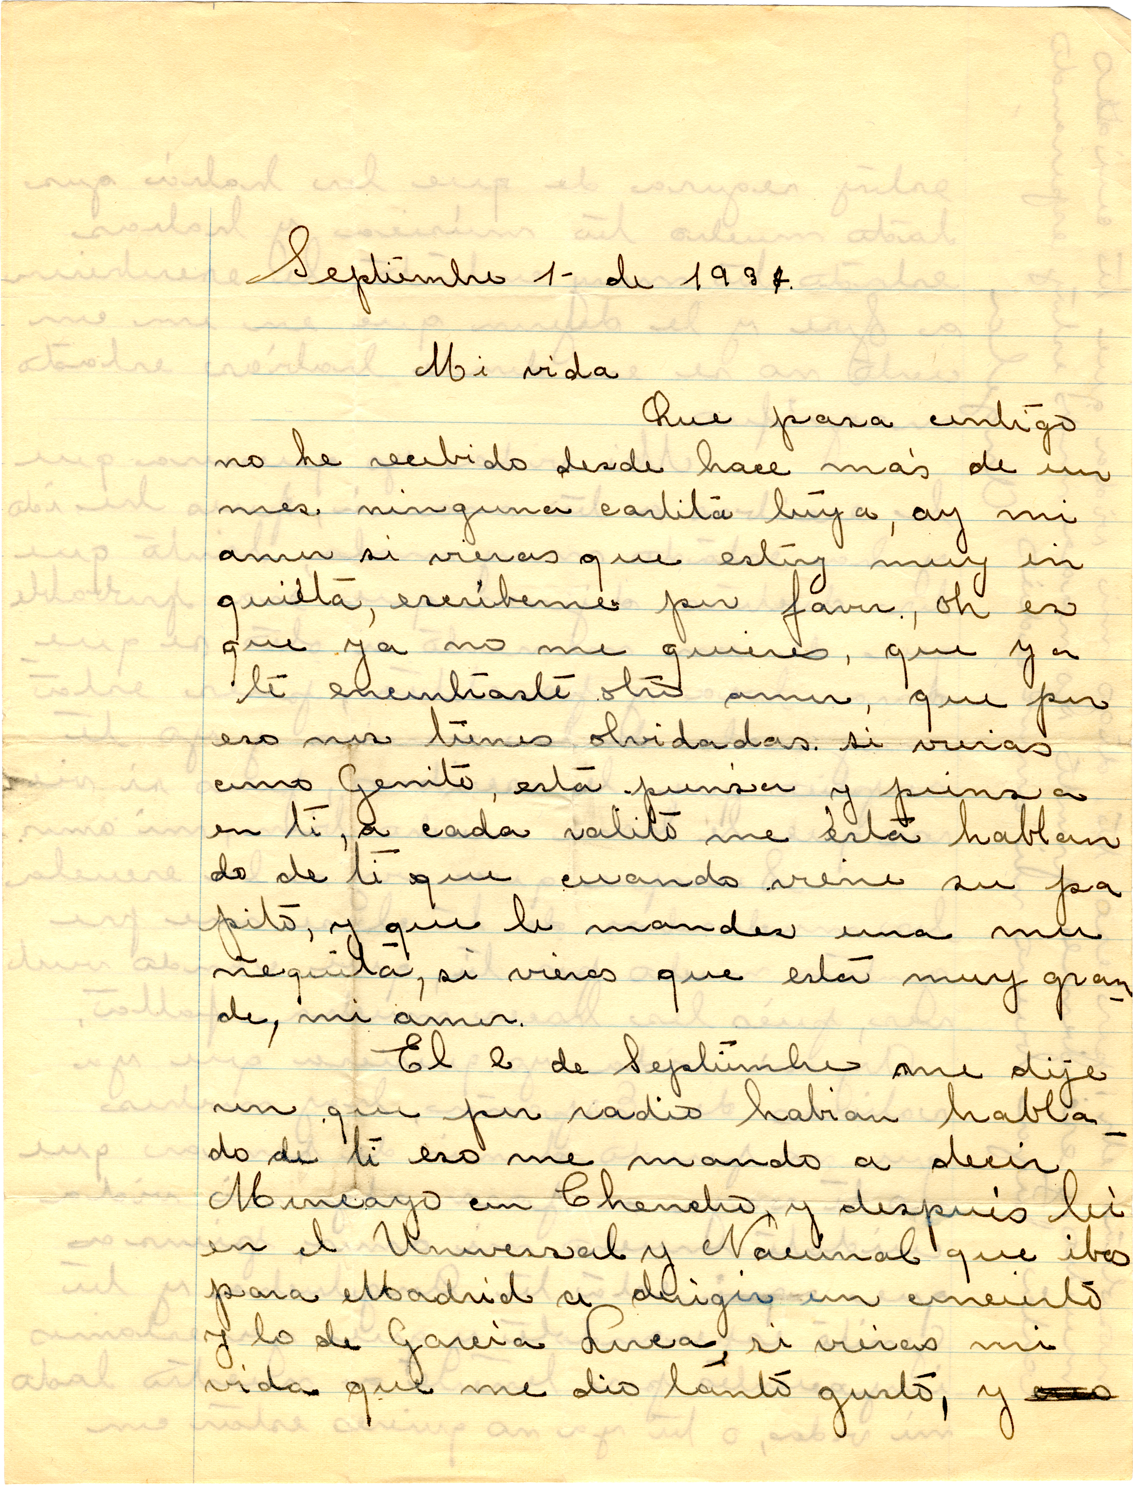 Septiembre 1- de 1937.
Mi vida
Que pasa contigo
no he recibido desde hace más de un
mes ninguna cartita tuya, ay mi
amor si vieras que estoy muy in
quieta, escríbeme por favor., oh es
que ya no me quieres, que ya
te encontraste otro amor, que por
eso nos tienes olvidadas. si vieras
como Genito, está piensa y piensa
en ti, a cada ratito me está hablan
do de ti que cuando viene su pa
pito, y que le mandes una mu
ñequita, si vieras que está muy gran_
de, mi amor.
El 2 de Septiembre me dije
ron que por radio habian habla_
do de ti eso me mando a decir
Moncayo con Chencho, y después leí
en el Universal y Nacional que ibas
para Madrid a dirigir un concierto
y lo de García Lorca, si vieras mi
vida que me dio tanto gusto, y